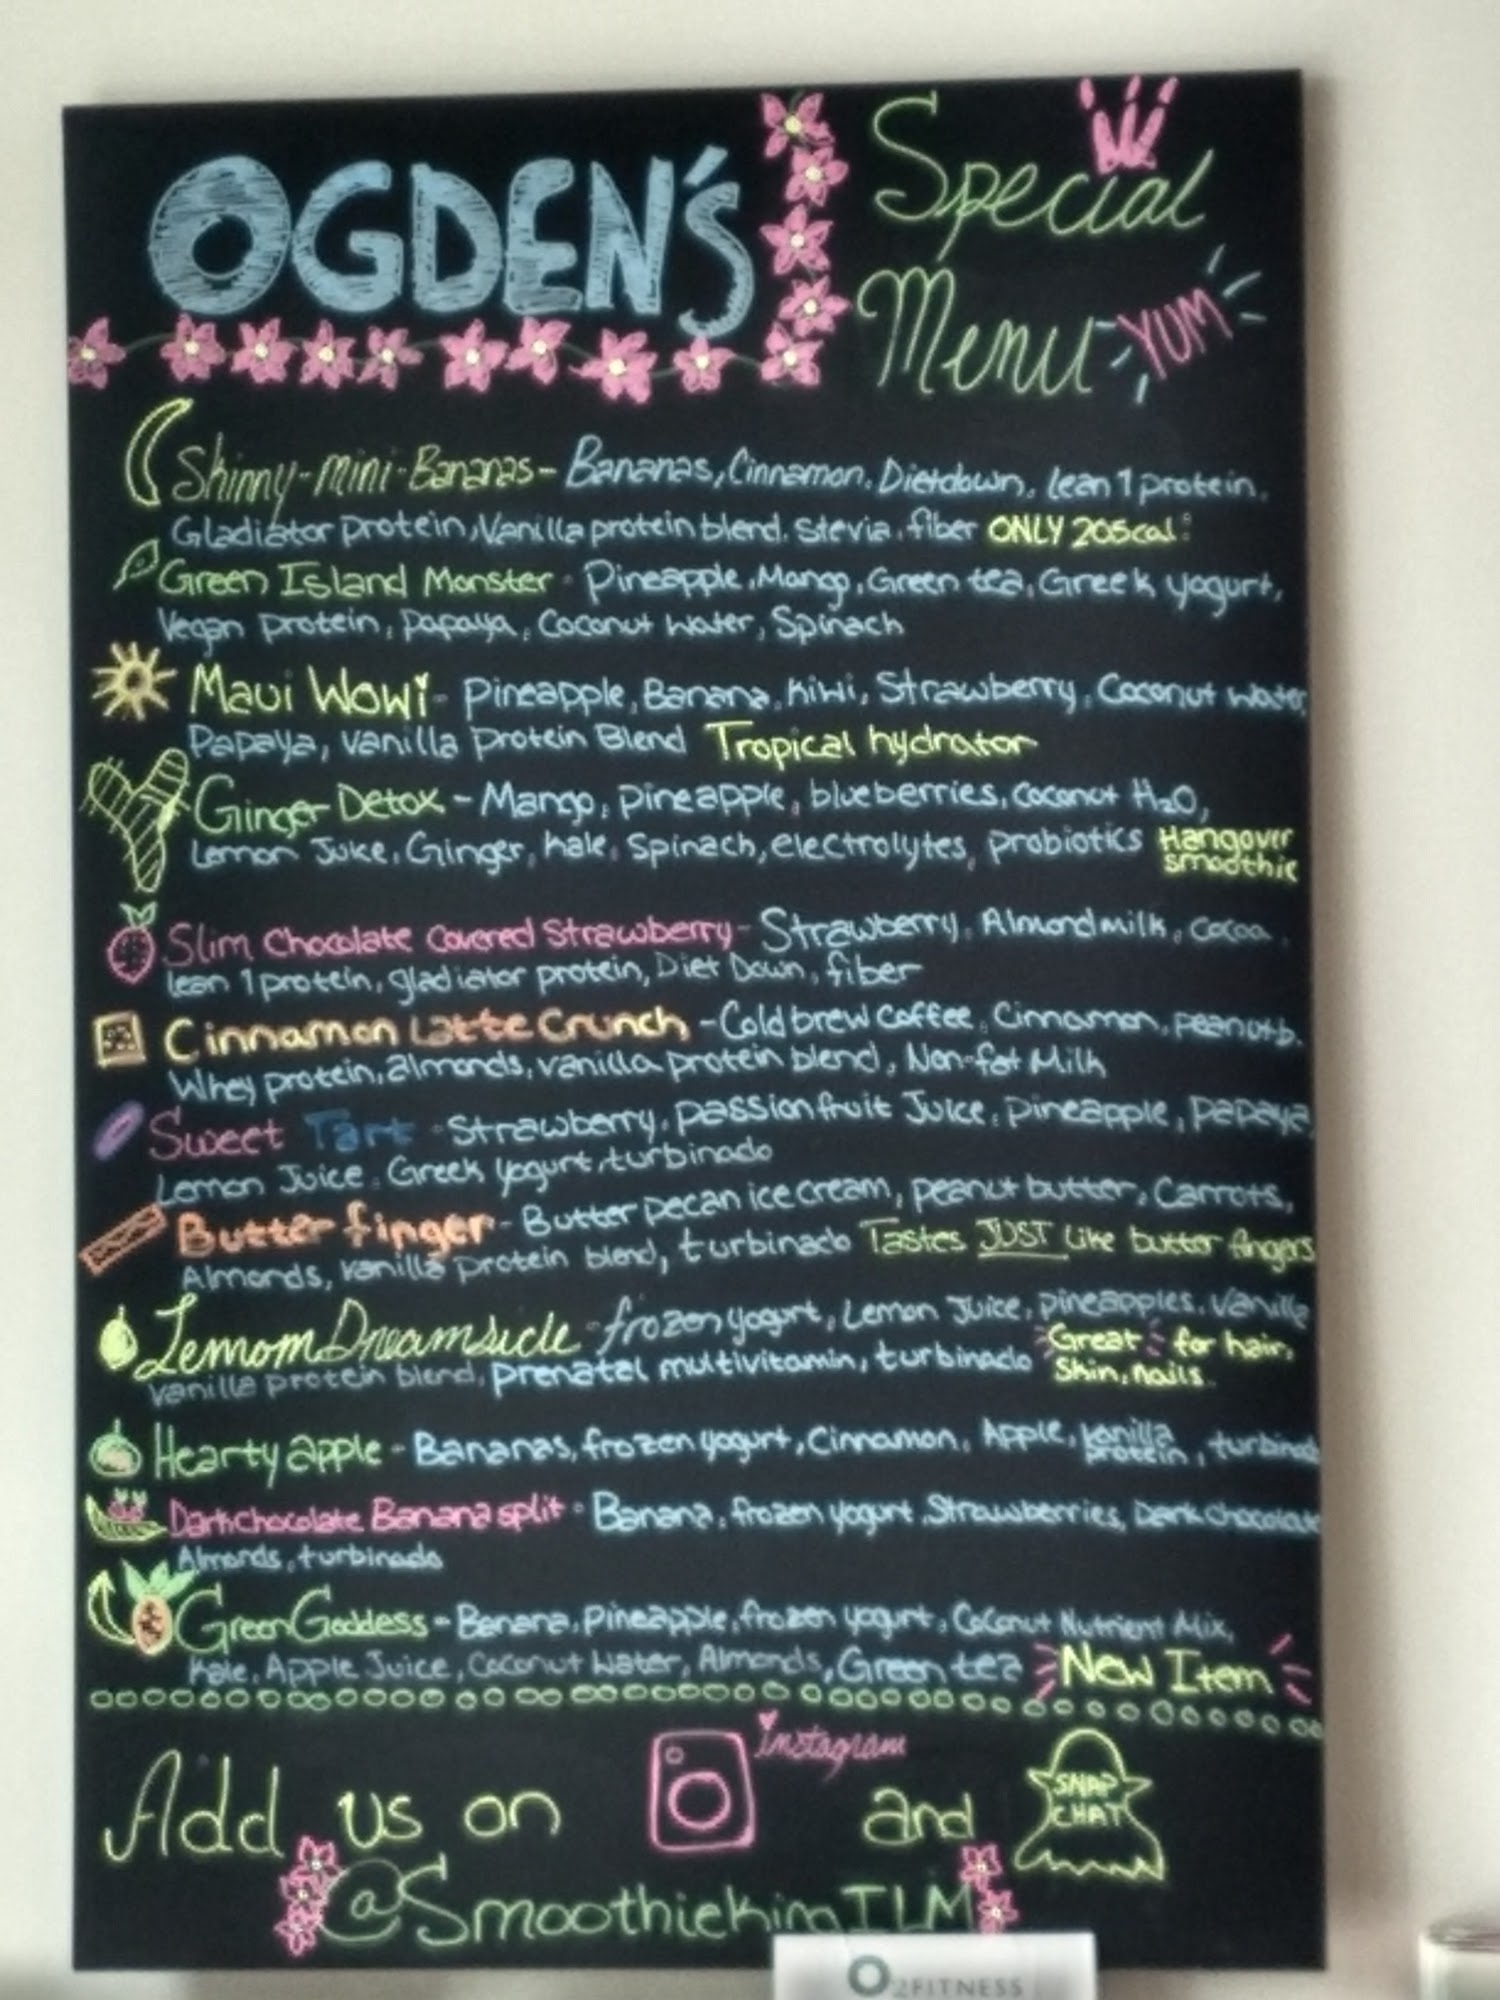 OGDEN'S
Special
Menu YUM
Skinny-mini-Bananas- Bananas, Cinnamon, Dietdown, lean 1 protein,
Gladiator protein, Vanilla protein blend, stevia, fiber ONLY 205cal!
Green Island Monster - Pineapple, Mango, Green tea, Greek yogurt,
Vegan protein, papaya, Coconut water, Spinach
Maui Wowi - Pineapple, Banana, kiwi, Strawberry, Coconut water,
Papaya, vanilla protein Blend Tropical hydrator
Ginger Detox - Mango, pineapple, blueberries, coconut H2O,
Lemon Juice, Ginger, kale, Spinach, electrolytes, probiotics Hangover
smoothie
Slim Chocolate Covered Strawberry - Strawberry, Almond milk, cocoa,
lean 1 protein, gladiator protein, Diet Down, fiber
Cinnamon Latte Crunch - Cold brew coffee, Cinnamon, peanut b.
Whey protein, almonds, vanilla protein blend, Non-fat Milk
Sweet Tart - Strawberry, passionfruit Juice, pineapple, papaya,
Lemon Juice, Greek yogurt, turbinado
Butterfinger - Butter pecan ice cream, peanut butter, Carrots,
Almonds, vanilla protein blend, turbinado Tastes JUST Like butter fingers
Lemom Dreamsicle - frozen yogurt, Lemon Juice, pineapples, vanilla
vanilla protein blend, prenatal multivitamin, turbinado Great for hair,
Skin, nails
Hearty apple - Bananas, frozen yogurt, Cinnamon, Apple, vanilla
protein, turbinado
Dark chocolate Banana split - Banana, frozen yogurt, Strawberries, Dark chocolate
Almonds, turbinado
Green Goddess - Banana, Pineapple, frozen yogurt, Coconut Nutrient Mix,
kale, Apple Juice, Coconut Water, Almonds, Green tea New Item
Instagram
Add us on and SNAP
CHAT
@SmoothiekingILM
O2FITNESS